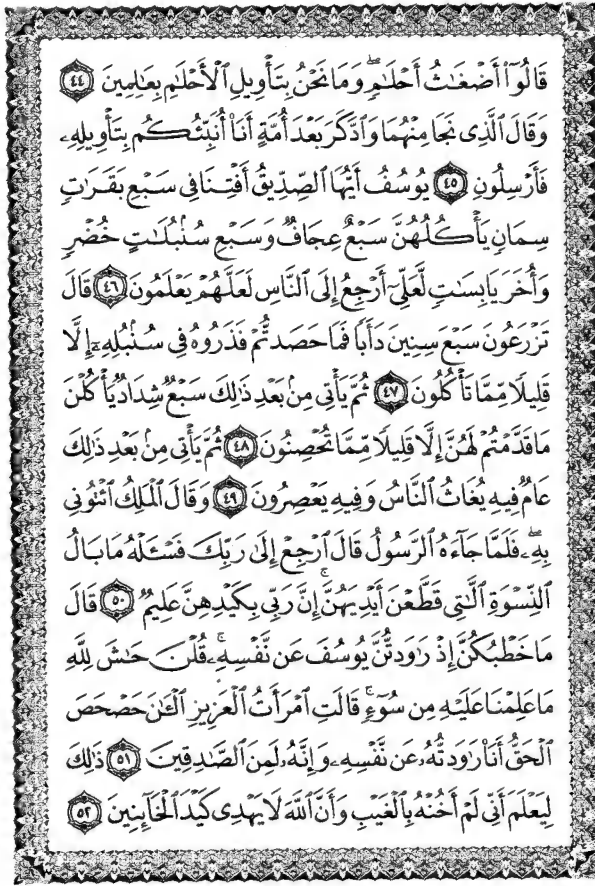 قَالُوٓاْ أَضْغَٰثُ أَحْلَٰمٖۖ وَمَا نَحْنُ بِتَأْوِيلِ ٱلْأَحْلَٰمِ بِعَٰلِمِينَ ٤٤
وَقَالَ ٱلَّذِى نَجَا مِنْهُمَا وَٱدَّكَرَ بَعْدَ أُمَّةٍ أَنَا۠ أُنَبِّئُكُم بِتَأْوِيلِهِۦ
فَأَرْسِلُونِ ٤٥ يُوسُفُ أَيُّهَا ٱلصِّدِّيقُ أَفْتِنَا فِى سَبْعِ بَقَرَٰتٍ
سِمَانٍ يَأْكُلُهُنَّ سَبْعٌ عِجَافٌ وَسَبْعِ سُنۢبُلَٰتٍ خُضْرٍ
وَأُخَرَ يَابِسَٰتٍ لَّعَلِّىٓ أَرْجِعُ إِلَى ٱلنَّاسِ لَعَلَّهُمْ يَعْلَمُونَ ٤٦ قَالَ
تَزْرَعُونَ سَبْعَ سِنِينَ دَأَبًا فَمَا حَصَدتُّمْ فَذَرُوهُ فِى سُنۢبُلِهِۦٓ إِلَّا
قَلِيلًا مِّمَّا تَأْكُلُونَ ٤٧ ثُمَّ يَأْتِى مِنۢ بَعْدِ ذَٰلِكَ سَبْعٌ شِدَادٌ يَأْكُلْنَ
مَا قَدَّمْتُمْ لَهُنَّ إِلَّا قَلِيلًا مِّمَّا تُحْصِنُونَ ٤٨ ثُمَّ يَأْتِى مِنۢ بَعْدِ ذَٰلِكَ
عَامٌ فِيهِ يُغَاثُ ٱلنَّاسُ وَفِيهِ يَعْصِرُونَ ٤٩ وَقَالَ ٱلْمَلِكُ ٱئْتُونِى
بِهِۦۖ فَلَمَّا جَآءَهُ ٱلرَّسُولُ قَالَ ٱرْجِعْ إِلَىٰ رَبِّكَ فَسْـَٔلْهُ مَا بَالُ
ٱلنِّسْوَةِ ٱلَّٰتِى قَطَّعْنَ أَيْدِيَهُنَّۚ إِنَّ رَبِّى بِكَيْدِهِنَّ عَلِيمٌ ٥٠ قَالَ
مَا خَطْبُكُنَّ إِذْ رَٰوَدتُّنَّ يُوسُفَ عَن نَّفْسِهِۦۚ قُلْنَ حَٰشَ لِلَّهِ
مَا عَلِمْنَا عَلَيْهِ مِن سُوٓءٍۚ قَالَتِ ٱمْرَأَتُ ٱلْعَزِيزِ ٱلْـَٰٔنَ حَصْحَصَ
ٱلْحَقُّ أَنَا۠ رَٰوَدتُّهُۥ عَن نَّفْسِهِۦ وَإِنَّهُۥ لَمِنَ ٱلصَّٰدِقِينَ ٥١ ذَٰلِكَ
لِيَعْلَمَ أَنِّى لَمْ أَخُنْهُ بِٱلْغَيْبِ وَأَنَّ ٱللَّهَ لَا يَهْدِى كَيْدَ ٱلْخَآئِنِينَ ٥٢